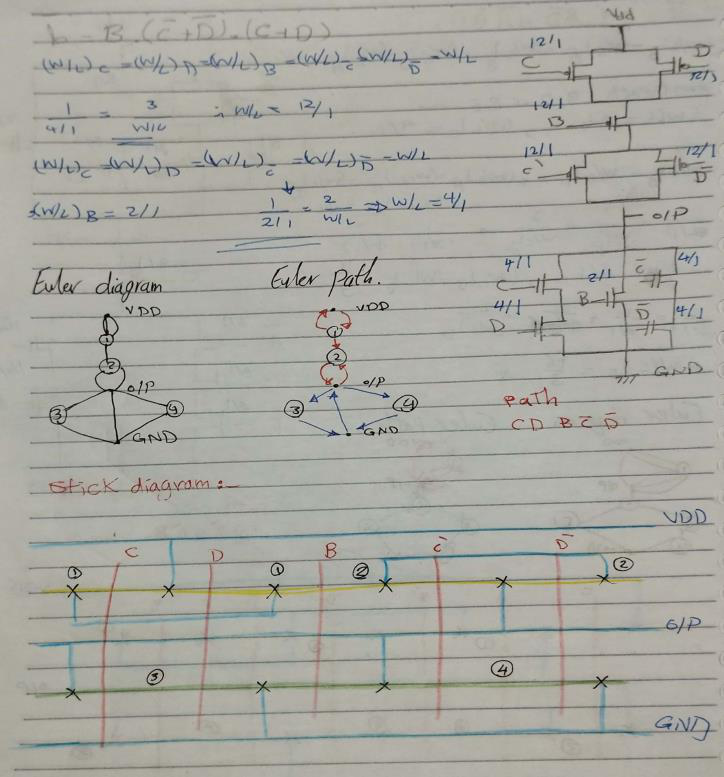 b = B . (C̅+D̅) . (C+D)
(W/L)C = (W/L)D = (W/L)B = (W/L)C̅ = (W/L)D̅ = W/L
1/(4/1) = 3/(W/L) ∴ W/L = 12/1
(W/L)C = (W/L)D = (W/L)C̅ = (W/L)D̅ = W/L
(W/L)B = 2/1
1/(2/1) = 2/(W/L) ⇒ W/L = 4/1
Vdd
12/1
C
D
12/1
12/1
B
12/1
C̅
12/1
D̅
O/P
4/1
C
4/1
D
2/1
B
C̅
4/1
D̅
4/1
GND
Euler diagram
VDD
1
2
O/P
3
4
GND
Euler Path.
VDD
1
2
O/P
3
4
GND
Path
C D B C̅ D̅
Stick diagram:-
VDD
C D B C̅ D̅
① ① ② ②
O/P
③ ④
GND